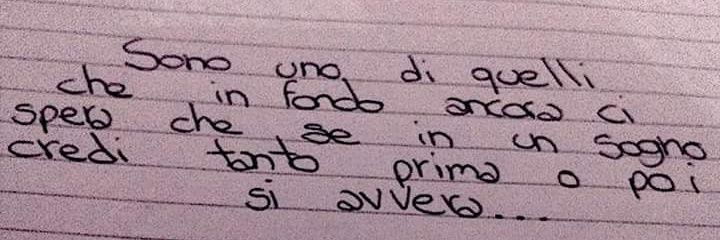 Sono uno di quelli
che in fondo ancora ci
spera che se in un sogno
credi tanto prima o poi
si avvera...